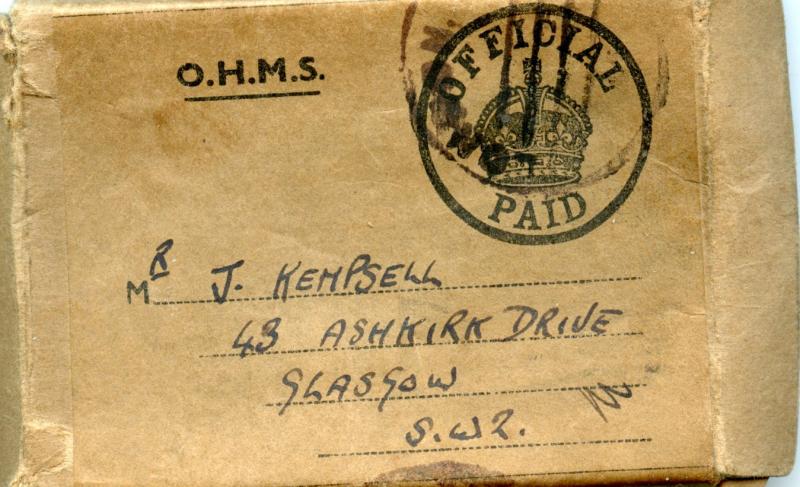 O.H.M.S.
OFFICIAL
PAID
MR J. KEMPSELL
43 ASHKIRK DRIVE
GLASGOW
S.W2.